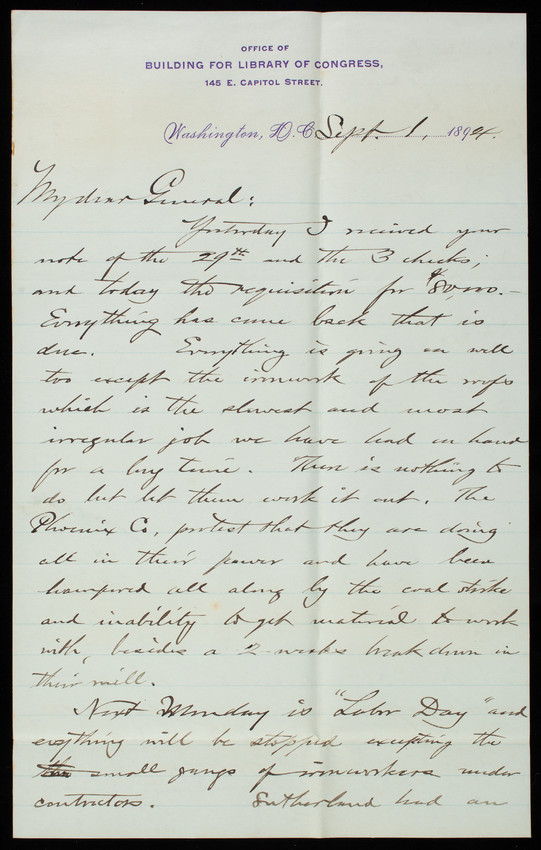 OFFICE OF
BUILDING FOR LIBRARY OF CONGRESS,
145 E. CAPITOL STREET.
Washington, D. C. Sept. 1, 1894.
My dear General:
Yesterday I received your
note of the 29th and the 3 checks;
and today the requisition for $80,000.—
Everything has come back that is
due. Everything is going on well
too except the ironwork of the roofs
which is the slowest and most
irregular job we have had on hand
for a long time. There is nothing to
do but let them work it out. The
Phoenix Co. protest that they are doing
all in their power and have been
hampered all along by the coal strike
and inability to get material to work
with, besides a 2-weeks break down in
their mill.
Next Monday is "Labor Day" and
everything will be stopped excepting the
small gangs of ironworkers under
contractors. Sutherland had an